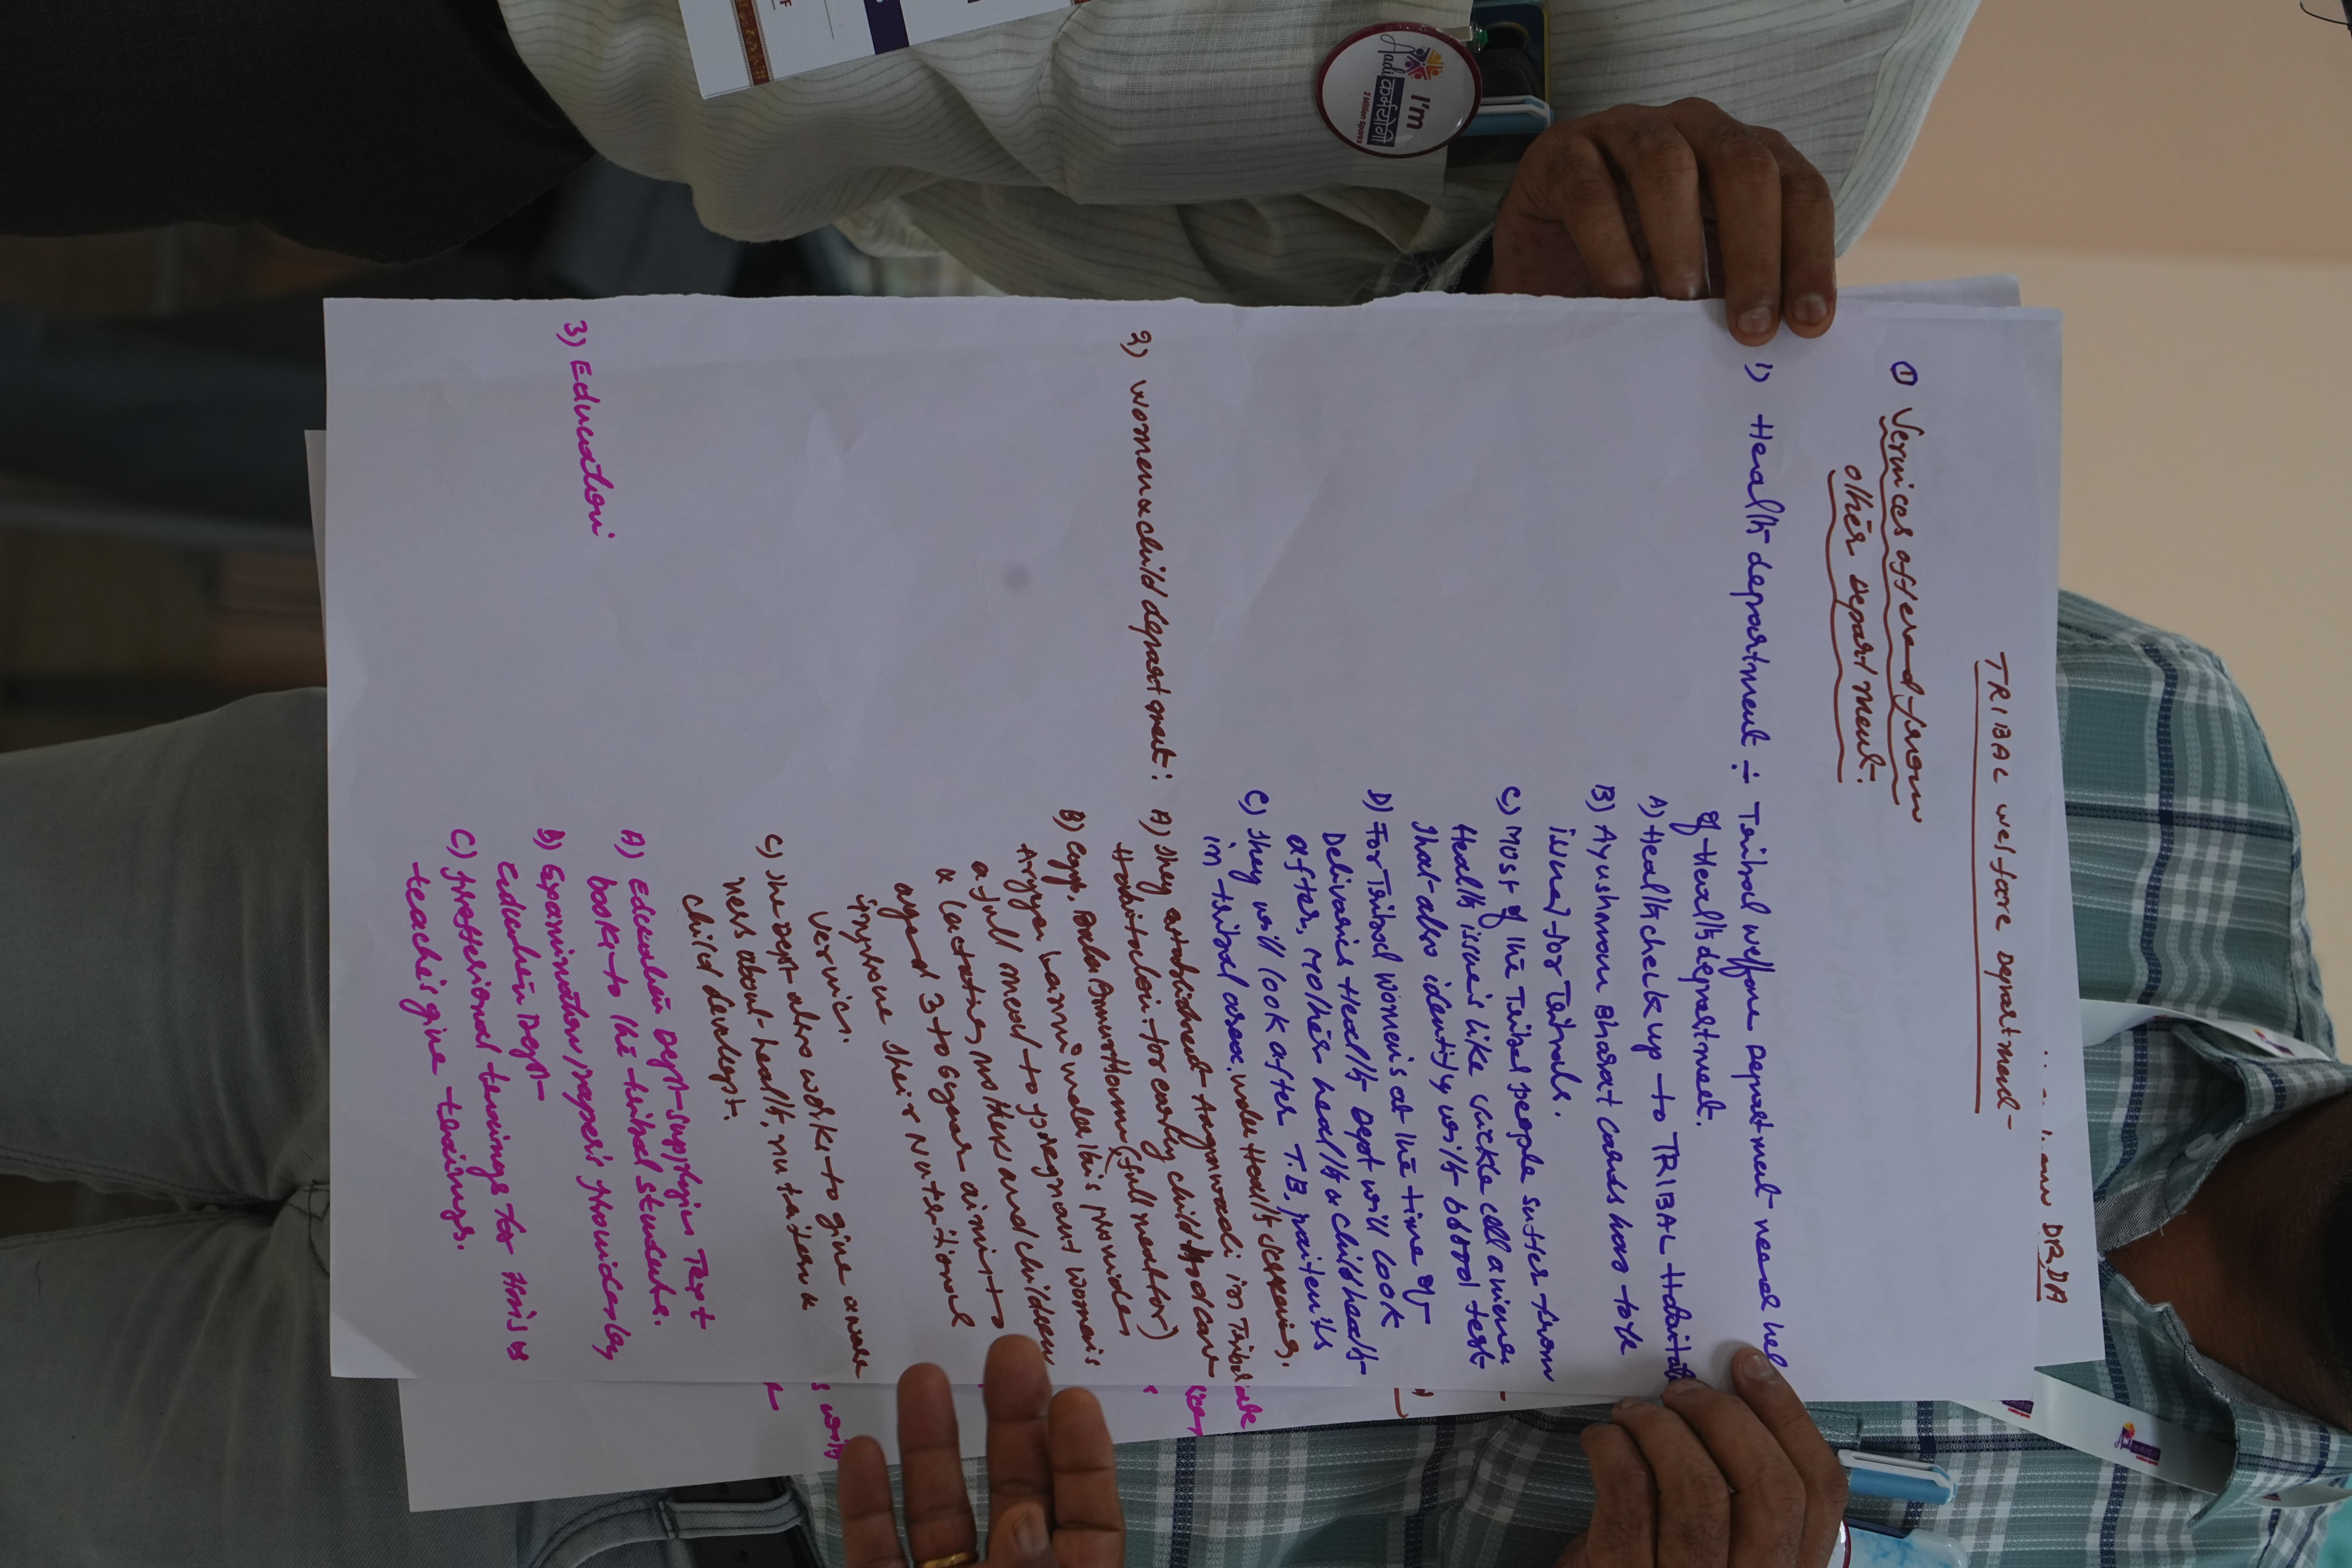 TRIBAL welfare Department
① Services offered from
other Department.
1) Health department ÷ Tribal welfare Department need hel
of Health department.
A) Health check up to TRIBAL Habitat
B) Ayushman Bharat cards has to be
issued for Tribals.
C) Most of the Tribal people suffer from
Health issues like sickle cell aniemea
that also identify with blood test
D) For Tribal women's at the time of
Deliveries Health Dept will look
after, mother health & child health
C) They will look after T.B, paitents
in tribal areas, under Health screening.
2) women & child department: A) They establishment Anganwadi in Tribal
Habitation. for early childhood care
B) Govt, Bala Amrutham (full nector)
Arogya Laxmi under this provides
a full meal to pregnant women's
& lactating mothers and children
aged 3 to 6 year aimist to
improve their Nuteritional
services.
C) The Dept also works to give aware
ness about health, nuteriton &
child develept.
3) Education
A) Education Dept supplyin Text
books to the tribal students.
B) Examination papers provides by
Education Dept
C) professional tenings for HM's &
teache's give tenings.
DRDA
I'm
Aadi
कर्मयोगी
2 Million Sparks